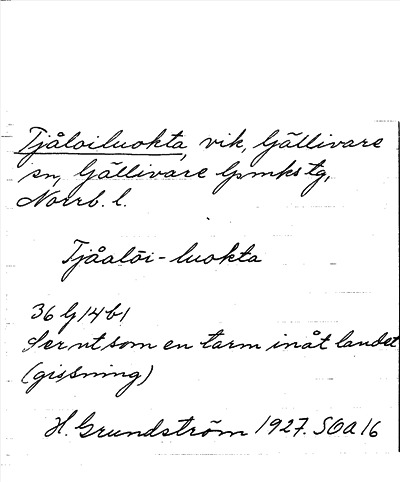 Tjåloiluokta, vik, Gällivare
sn, Gällivare lpmkstg,
Norrb. l.
Tjåalōi-luokta
36 G 14 b1
Ser ut som en tarm inåt landet
(gissning)
H. Grundström 1927. SOA 16